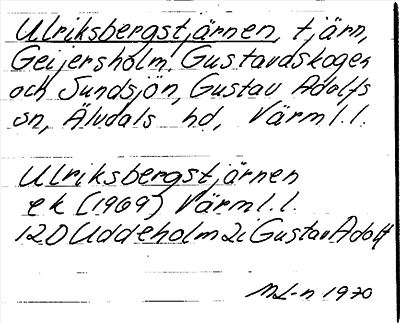 Ulriksbergstjärnen, tjärn,
Geijersholm, Gustavdskogen
och Sundsjön, Gustav Adolfs
sn, Älvdals hd, Värml.l.
Ulriksbergstjärnen
ek (1969) Värml.l.
12D Uddeholm 2i Gustav Adolf
1970